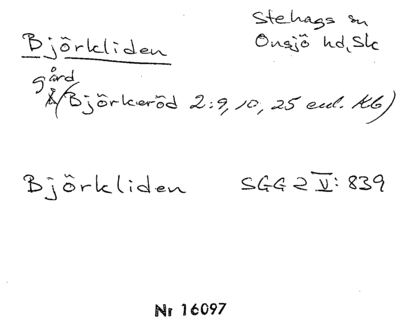 Björkliden
Stehags sn
Onsjö hd, Sk
gård
(Björkeröd 2:9, 10, 25 enl. Kb)
Björkliden SGG 2 V: 839
Nr 16097